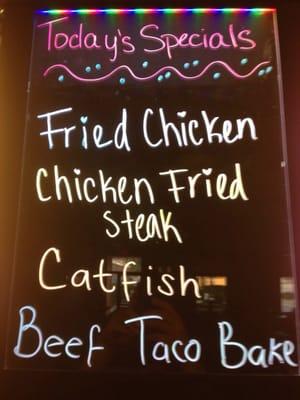 Today's Specials
Fried Chicken
Chicken Fried
Steak
Catfish
Beef Taco Bake